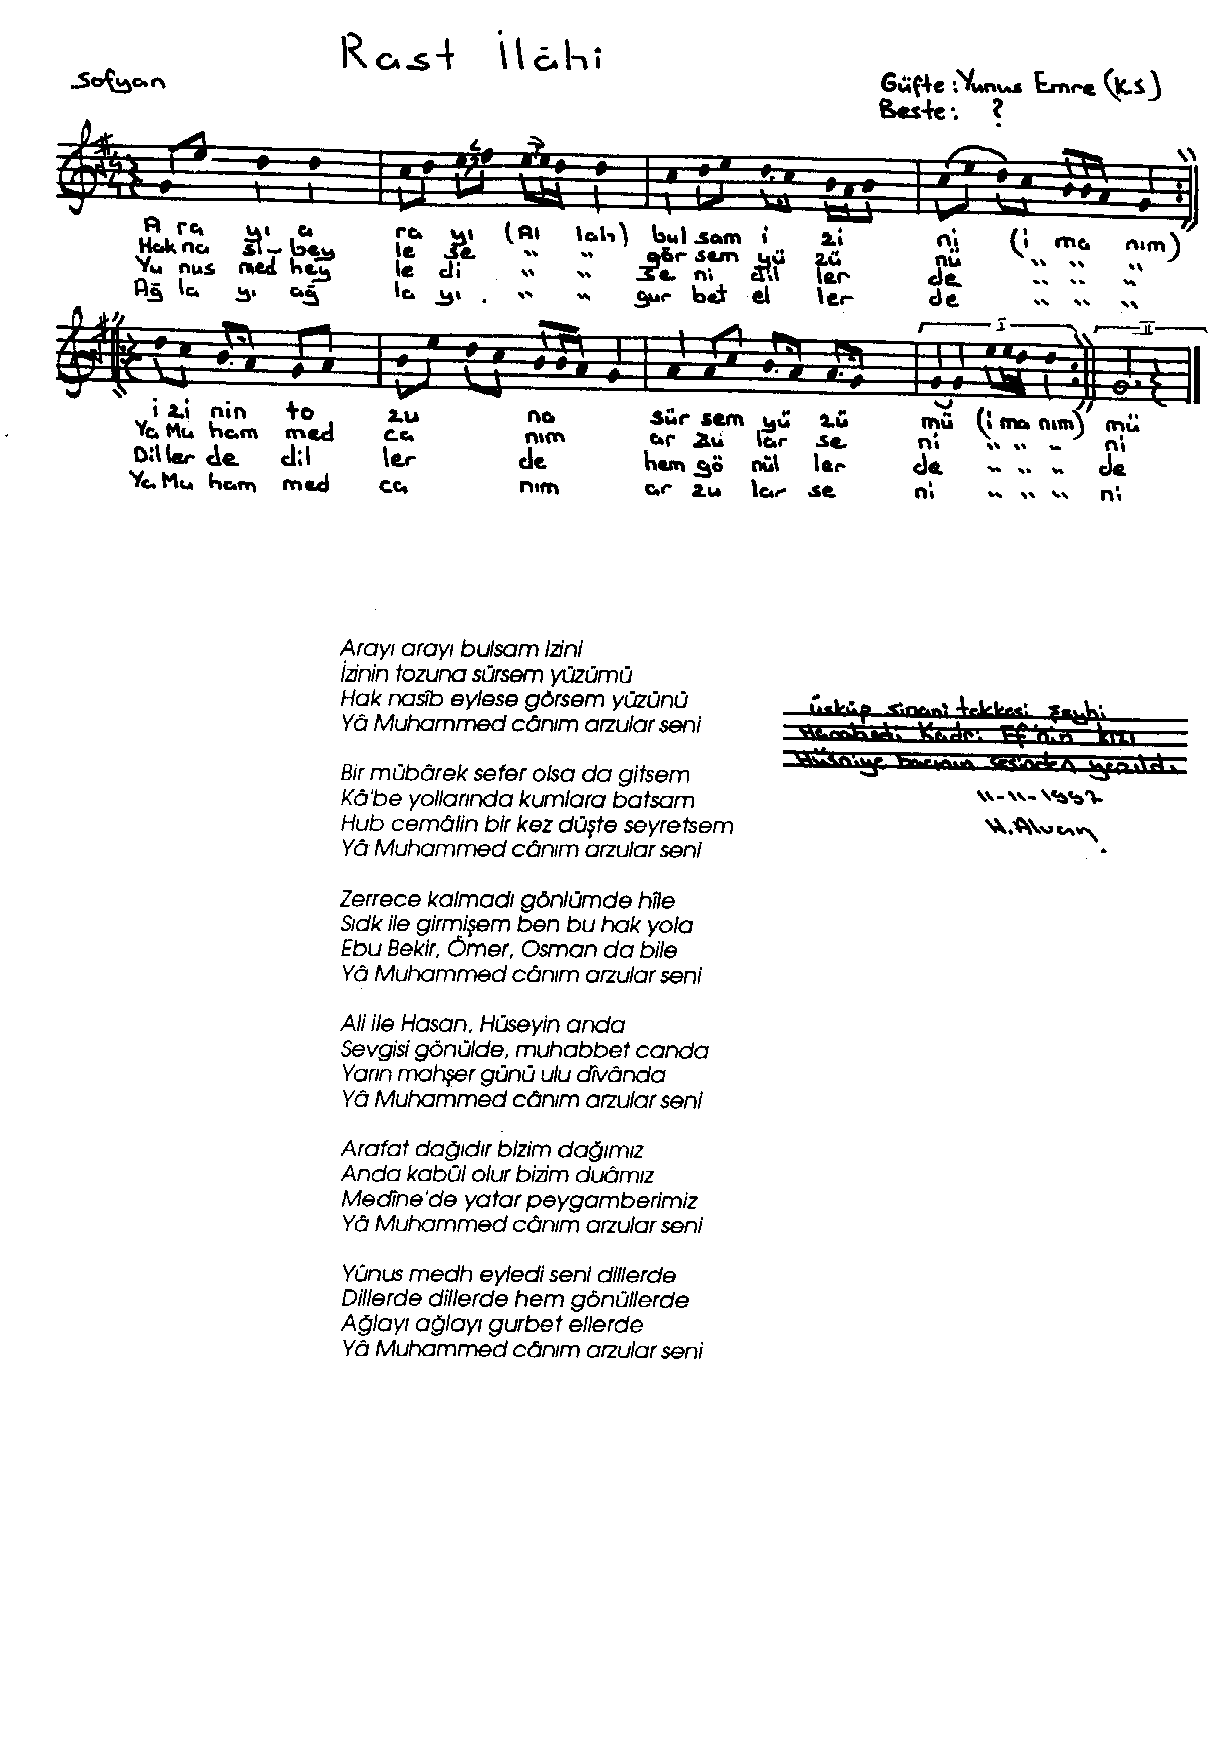 Rast İlâhi
Sofyan
Güfte: Yunus Emre (K.S)
Beste: ?
A ra yı a ra yı (Al lah) bul sam i zi ni (i ma nım)
Hak na si- bey le se " " gör sem yü zü nü " " "
Yu nus med hey le di " " se ni dil ler de " " "
Ağ la yı ağ la yı. " " gur bet el ler de " " "
I II
i zi nin to zu na sür sem yü zü mü (i ma nım) mü
Ya Mu ham med ca nım ar zu lar se ni " " " ni
Dil ler de dil ler de hem gö nül ler de " " " de
Ya Mu ham med ca nım ar zu lar se ni " " " ni
Arayı arayı bulsam izini
İzinin tozuna sürsem yüzümü
Hak nasîb eylese görsem yüzünü
Yâ Muhammed cânım arzular seni
Bir mübârek sefer olsa da gitsem
Kâ'be yollarında kumlara batsam
Hub cemâlin bir kez düşte seyretsem
Yâ Muhammed cânım arzular seni
Zerrece kalmadı gönlümde hîle
Sıdk ile girmişem ben bu hak yola
Ebu Bekir, Ömer, Osman da bile
Yâ Muhammed cânım arzular seni
Ali ile Hasan, Hüseyin anda
Sevgisi gönülde, muhabbet canda
Yarın mahşer günü ulu dîvânda
Yâ Muhammed cânım arzular seni
Arafat dağıdır bizim dağımız
Anda kabûl olur bizim duâmız
Medîne'de yatar peygamberimiz
Yâ Muhammed cânım arzular seni
Yûnus medh eyledi seni dillerde
Dillerde dillerde hem gönüllerde
Ağlayı ağlayı gurbet ellerde
Yâ Muhammed cânım arzular seni
üsküp sinani tekkesi Şeyhi
Kadri Ef'nin kızı
Hüsniye bacının sesinden yazıldı
11-11-1992
H. Alvan